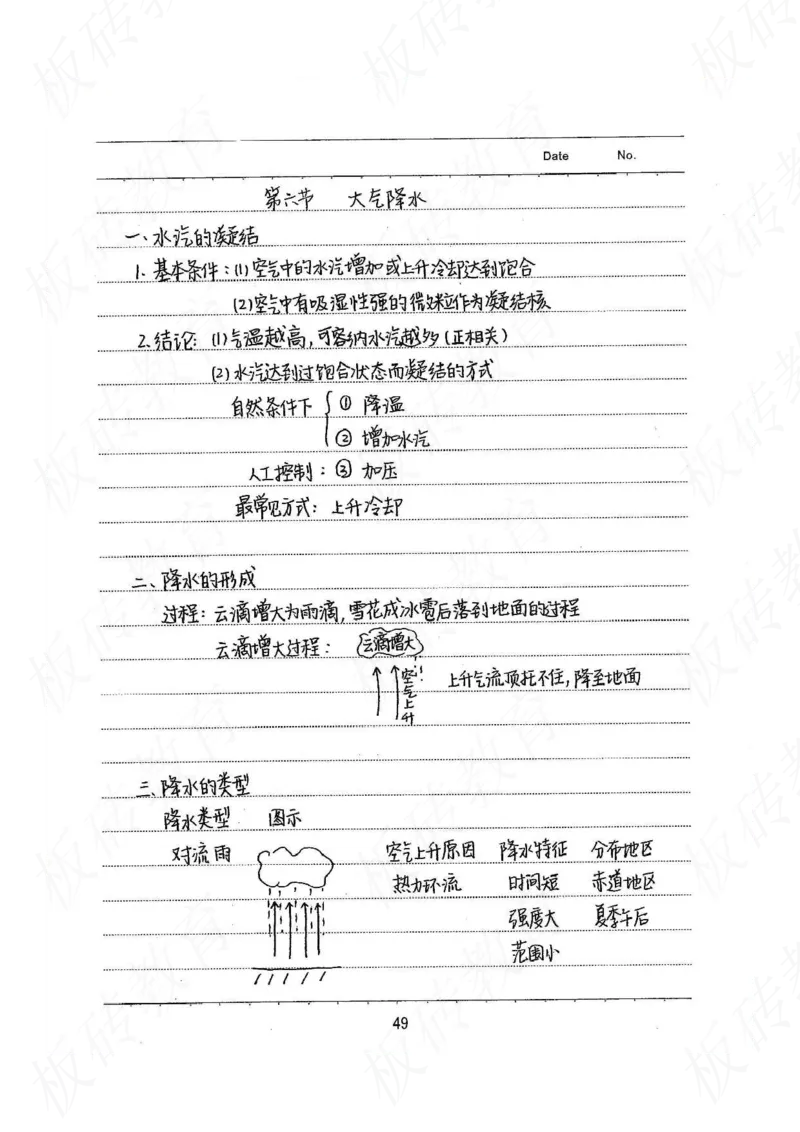 Date No.
第六节 大气降水
一、水汽的凝结
1. 基本条件：(1)空气中的水汽增加或上升冷却达到饱合
(2)空气中有吸湿性强的微粒作为凝结核
2.结论：(1)气温越高，可容纳水汽越多(正相关)
(2)水汽达到过饱合状态而凝结的方式
自然条件下 ① 降温
② 增加水汽
人工控制：③ 加压
最常见方式：上升冷却
二、降水的形成
过程：云滴增大为雨滴，雪花成冰雹后落到地面的过程
云滴增大过程： 云滴增大
空气上升 上升气流顶托不住，降至地面
三、降水的类型
降水类型 图示
对流雨 空气上升原因 降水特征 分布地区
热力环流 时间短 赤道地区
强度大 夏季午后
范围小
49
板砖教育